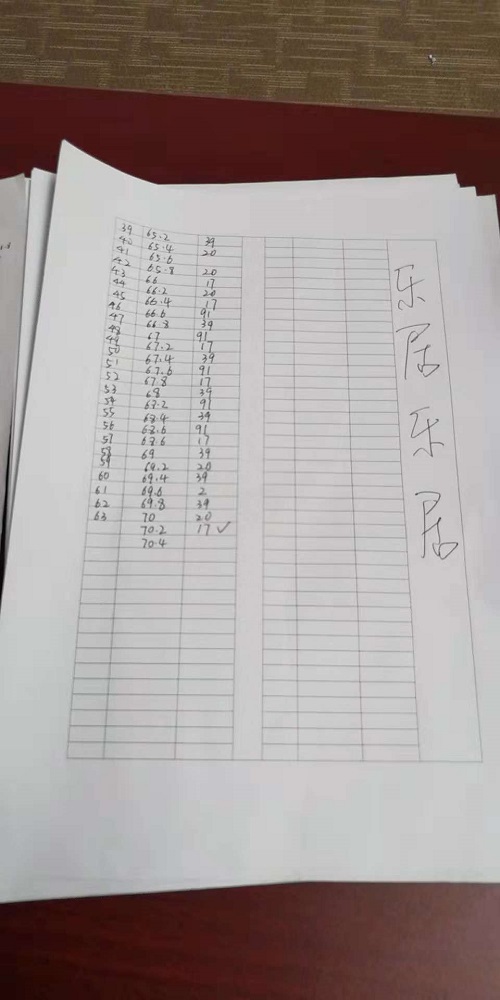 39 65.2 39
40 65.4 20
41 65.6
42 65.8 20
43 66 17
44 66.2 20
45 66.4 17
46 66.6 91
47 66.8 39
48 67 91
49 67.2 17
50 67.4 39
51 67.6 91
52 67.8 17
53 68 39
54 67.2 91
55 68.4 39
56 68.6 91
57 68.6 17
58 69 39
59 69.2 20
60 69.4 39
61 69.6 2
62 69.8 39
63 70 20
70.2 17 ✓
70.4
乐居乐居